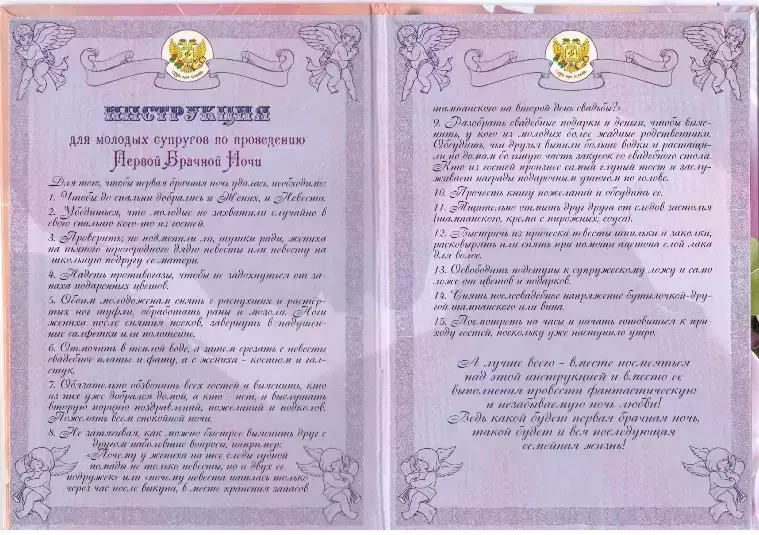 ИНСТРУКЦИЯ
для молодых супругов по проведению
Первой Брачной Ночи
Для того, чтобы первая брачная ночь удалась, необходимо:
1. Чтобы до спальни добрались и Жених, и Невеста.
2. Убедиться, что молодые не захватили случайно в
свою спальню кого-то из гостей.
3. Проверить, не подменили ли, шутки ради, жениха
на пьяного иногороднего дядю невесты или невесту на
школьную подругу ее матери.
4. Надеть противогазы, чтобы не задохнуться от за-
паха подаренных цветов.
5. Обоим молодоженам снять с распухших и растер-
тых ног туфли, обработать раны и мозоли. Ноги
жениха после снятия носков, завернуть в надушен-
ные салфетки или полотенце.
6. Отмочить в теплой воде, а затем срезать с невесты
свадебное платье и фату, а с жениха - костюм и гал-
стук.
7. Обязательно обзвонить всех гостей и выяснить, кто
из них уже добрался домой, а кто - нет, и выслушать
вторую порцию поздравлений, пожеланий и подколов.
Пожелать всем спокойной ночи.
8. Не затягивая, как можно быстрее выяснить друг с
другом наболевшие вопросы, например:
«Почему у жениха на шее следы губной
помады не только невесты, но и двух ее
подружек» или «почему невеста нашлась только
через час после выкупа, в месте хранения запасов
шампанского на второй день свадьбы?»
9. Разобрать свадебные подарки и деньги, чтобы выяс-
нить, у кого из молодых более жадные родственники.
Обсудить, чьи друзья выпили больше водки и растащи-
ли по домам большую часть закусок со свадебного стола.
Кто из гостей произнес самый глупый тост и заслу-
живает награды подарочным утюгом по голове.
10. Прочесть книгу пожеланий и обсудить ее.
11. Тщательно отмыть друг друга от следов застолья
(шампанского, крема с пирожных, соуса).
12. Выстричь из прически невесты шпильки и заколки,
расковырять или снять при помощи ацетона слой лака
для волос.
13. Освободить подступы к супружескому ложу и само
ложе от цветов и подарков.
14. Снять послесвадебное напряжение бутылочкой-дру-
гой шампанского или вина.
15. Посмотреть на часы и начать готовиться к при-
ходу гостей, поскольку уже наступило утро.
А лучше всего - вместе посмеяться
над этой инструкцией и вместо ее
выполнения провести фантастическую
и незабываемую ночь любви!
Ведь какой будет первая брачная ночь,
такой будет и вся последующая
семейная жизнь!